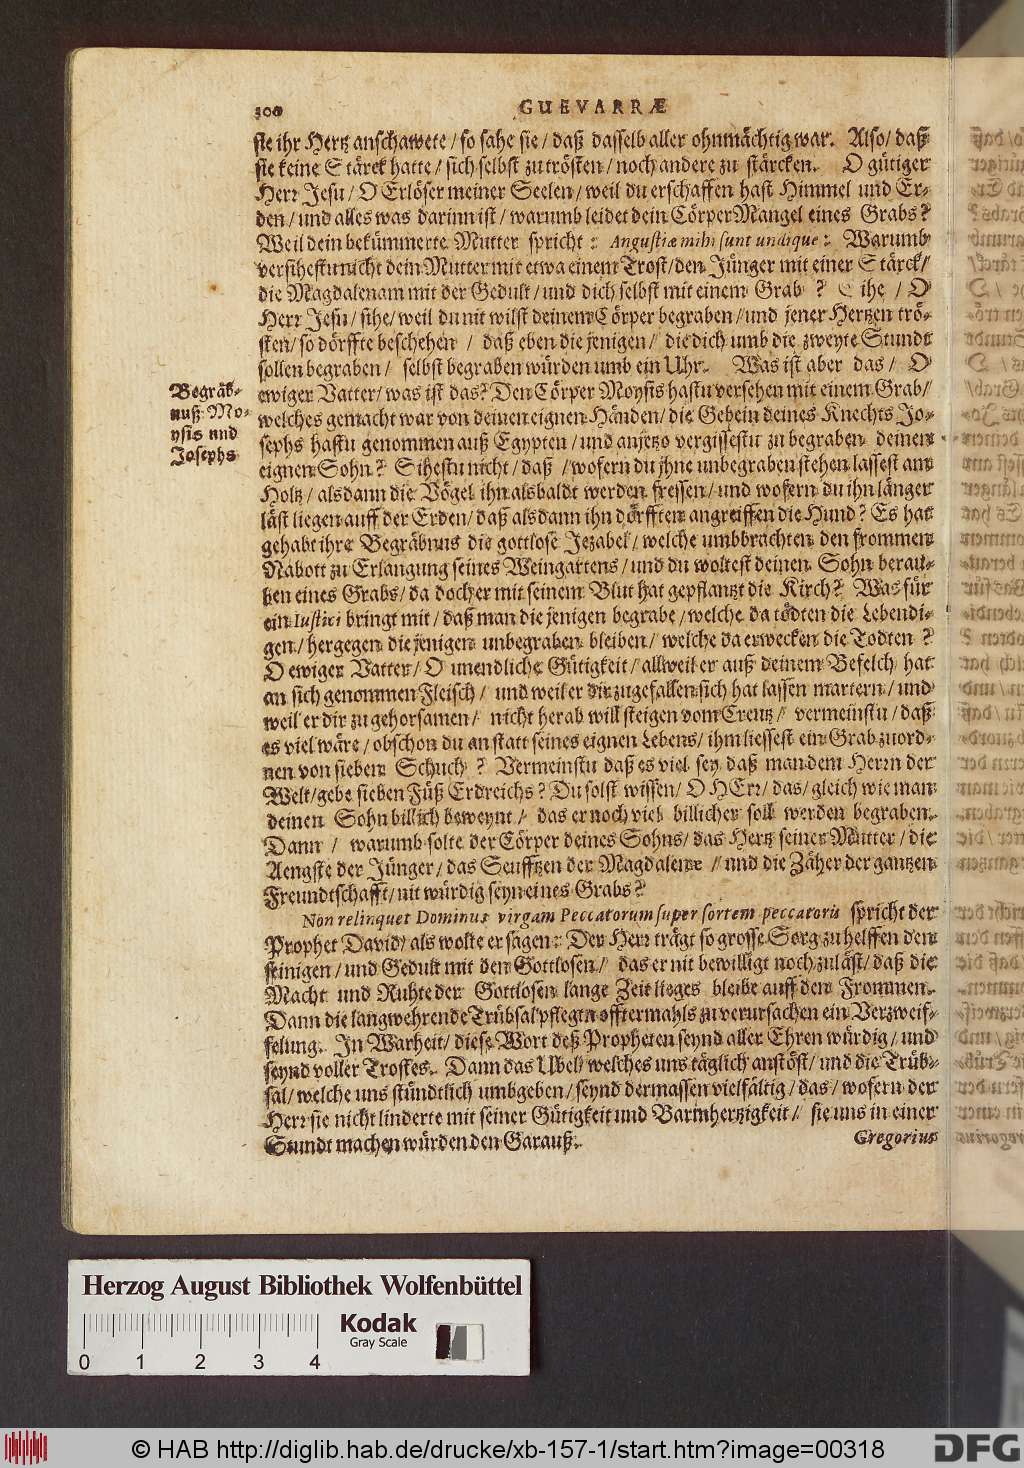 300 GUEVARRÆ
sie ihr Hertz anschawete / so sahe sie / daß dasselb aller ohnmächtig war. Also / daß
sie keine Stärck hatte / sich selbst zu trösten / noch andere zu stärcken. O gütiger
Herr Jesu / O Erlöser meiner Seelen / weil du erschaffen hast Himmel und Er-
den / und alles was darinn ist / warumb leidet dein Cörper Mangel eines Grabs?
Weil dein bekümmerte Mutter spricht: Angustiæ mihi sunt undique: Warumb
versihestu nicht dein Mutter mit etwa einem Trost / den Jünger mit einer Stärck /
die Magdalenam mit der Gedult / und dich selbst mit einem Grab? Sihe / O
Herr Jesu / sihe / weil du nit wilst deinem Cörper begraben / und jener Hertzen trö-
sten / so dörffte beschehen / daß eben die jenigen / die dich umb die zweyte Stundt
sollen begraben / selbst begraben würden umb ein Uhr. Was ist aber das / O
ewiger Vatter / was ist das? Den Cörper Moysis hastu versehen mit einem Grab /
welches gemacht war von deinen eignen Händen / die Gebein deines Knechts Jo-
sephs hastu genommen auß Egypten / und anjetzo vergissestu zu begraben deinen
eignen Sohn? Sihestu nicht / daß / wofern du jhne unbegraben stehen lassest am
Holtz / alsdann die Vögel ihn alsbaldt werden fressen / und wofern du ihn länger
läst liegen auff der Erden / daß alsdann ihn dörfften angreiffen die Hund? Es hat
gehabt ihre Begräbnus die gottlose Jezabel / welche umbbrachten den frommen
Nabott zu Erlangung seines Weingartens / und du woltest deinen Sohn berau-
ben eines Grabs / da doch er mit seinem Blut hat gepflantzt die Kirch? Was für
ein Iustici bringt mit / daß man die jenigen begrabe / welche da tödten die Lebendi-
gen / hergegen die jenigen unbegraben bleiben / welche da erwecken die Todten?
O ewiger Vatter / O unendliche Gütigkeit / allweil er auß deinem Befelch hat
an sich genommen Fleisch / und weil er dir zugefallen sich hat lassen martern / und
weil er dir zu gehorsamen / nicht herab will steigen vom Creutz / vermeinstu / daß
es viel wäre / obschon du an statt seines eignen Lebens / ihm liessest ein Grab zuord-
nen von sieben Schuch? Vermeinstu daß es viel sey daß man dem Herrn der
Welt / gebe sieben Füß Erdreichs? Du solst wissen / O HErr / das / gleich wie man
deinen Sohn billich beweynt / das er noch viel billicher soll werden begraben.
Dann / warumb solte der Cörper deines Sohns / das Hertz seiner Mutter / die
Aengste der Jünger / das Seufftzen der Magdalenæ / und die Zäher der gantzen
Freundtschafft / nit würdig seyn eines Grabs?
Non relinquet Dominus virgam Peccatorum super sortem peccatoris spricht der
Prophet David / als wolte er sagen: Der Herr trägt so grosse Sorg zu helffen den
seinigen / und Gedult mit den Gottlosen / das er nit bewilligt noch zuläst / daß die
Macht und Ruhte der Gottlosen lange Zeit lieges bleibe auff den Frommen.
Dann die langwehrende Trübsal pflegtn offtermahls zu verursachen ein Verzweif-
felung. In Warheit / diese Wort deß Propheten seynd aller Ehren würdig / und
seynd voller Trostes. Dann das Ubel / welches uns täglich anstöst / und die Trüb-
sal / welche uns stündtlich umbgeben / seynd dermassen vielfältig / das / wofern der
Herr sie nicht linderte mit seiner Gütigkeit und Barmhertzigkeit / sie uns in einer
Stundt machen würden den Garauß.
Gregorius
Begräb-
nuß Mo-
ysis und
Josephs
Herzog August Bibliothek Wolfenbüttel
Kodak
Gray Scale
0 1 2 3 4
© HAB http://diglib.hab.de/drucke/xb-157-1/start.htm?image=00318
DFG